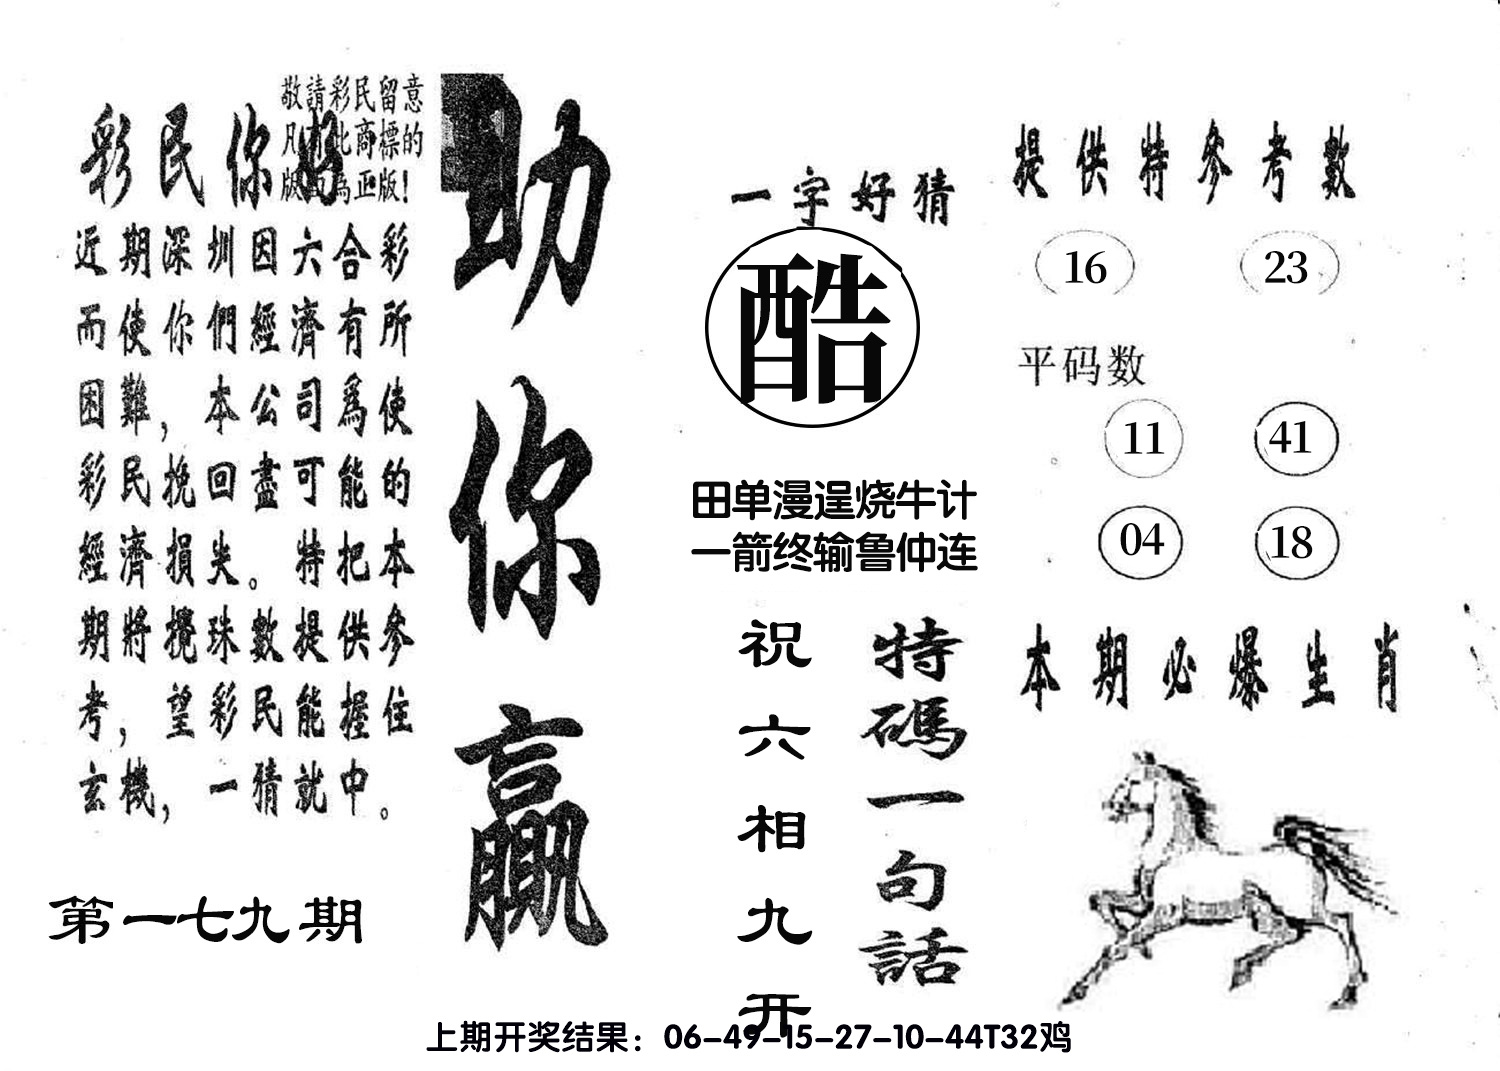 敬請彩民留意
凡有此商標的
版面為正版!
彩民你好
近期深圳因六合彩
而使你們經濟有所
困難，本公司爲使
彩民挽回盡可能的
經濟損失。特把本
期將攪珠數提供參
考，望彩民能握住
玄機，一猜就中。
第一七九期
助你贏
一字好猜
酷
田单漫逞烧牛计
一箭终输鲁仲连
特碼一句話
祝六相九开
提供特參考數
16 23
平码数
11 41
04 18
本期必爆生肖
上期开奖结果：06-49-15-27-10-44T32鸡